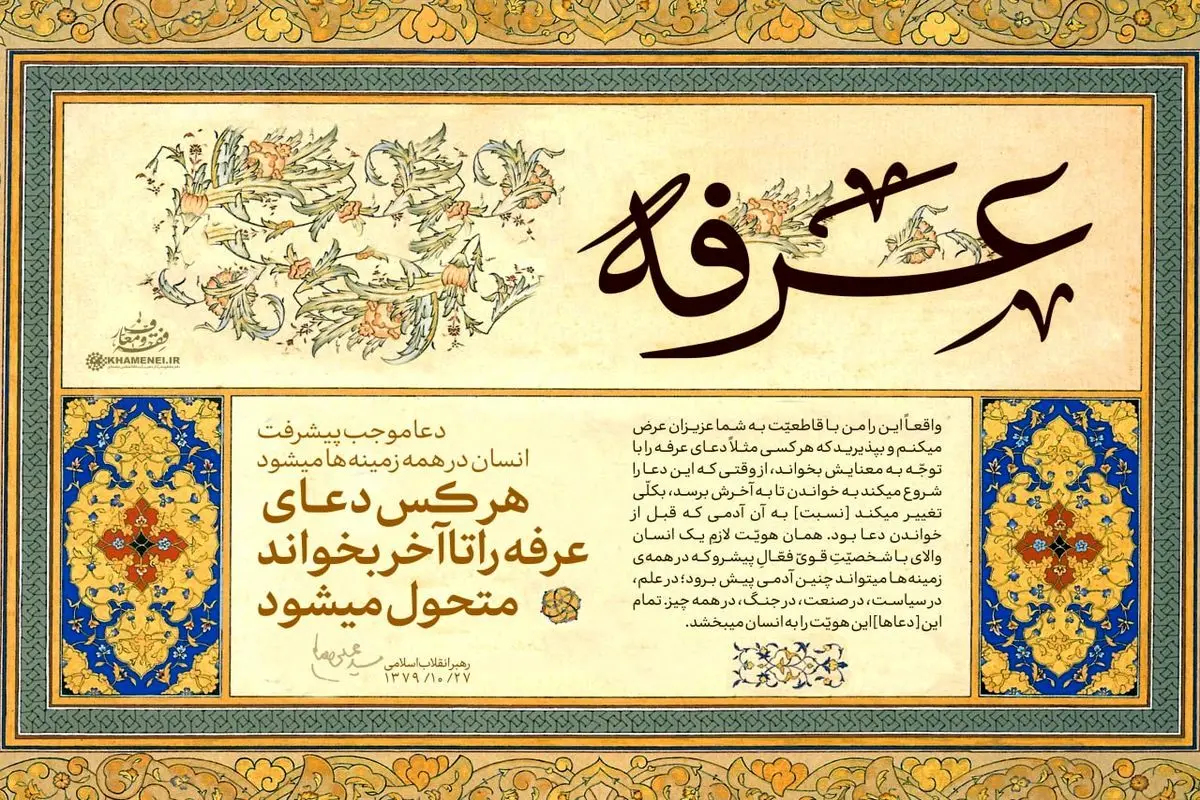 عرفه
واقعاً این را من با قاطعیّت به شما عزیزان عرض
میکنم و بپذیرید که هر کسی مثلاً دعای عرفه را با
توجّه به معنایش بخواند، از وقتی که این دعا را
شروع میکند به خواندن تا به آخرش برسد، بکلّی
تغییر میکند [نسبت] به آن آدمی که قبل از
خواندن دعا بود. همان هویّت لازمِ یک انسان
والای با شخصیّتِ قویّ فعّالِ پیشرو که در همه‌ی
زمینه‌ها میتواند چنین آدمی پیش برود؛ در علم،
در سیاست، در صنعت، در جنگ، در همه چیز. تمام
این [دعاها] این هویّت را به انسان میبخشد.
دعا موجب پیشرفت
انسان در همه زمینه‌ها میشود
هر کس دعای
عرفه را تا آخر بخواند
متحول میشود
رهبر انقلاب اسلامی
۱۳۷۹/۱۰/۲۷
فقه و معارف
KHAMENEI.IR